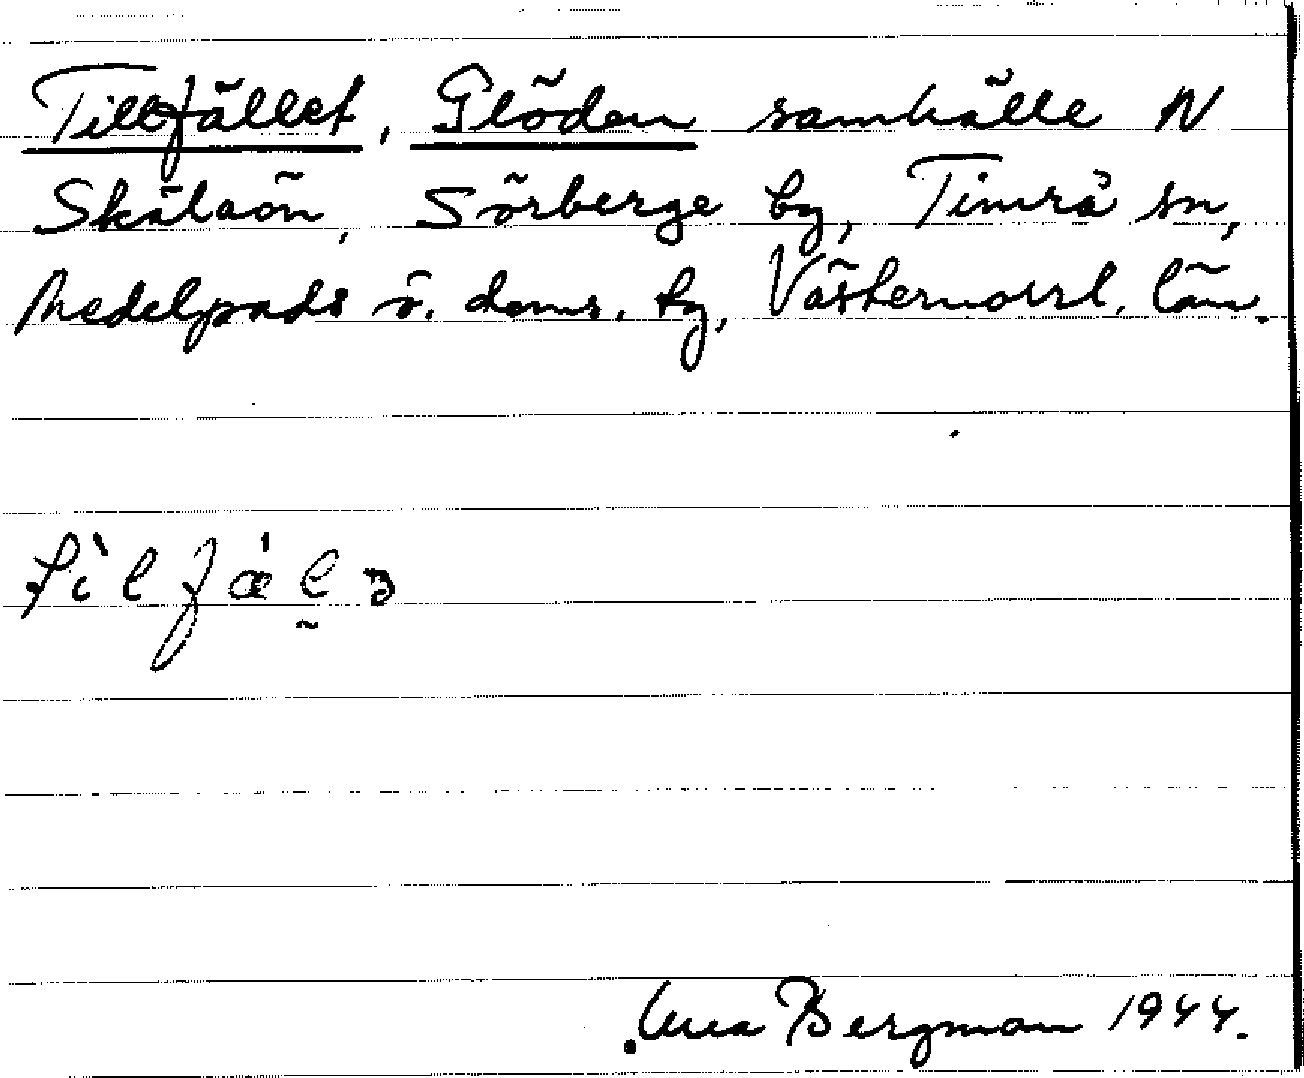 Tillfället, Glöden samhälle N
Skälaön, Sörberge by, Timrå sn,
Medelpads ö. doms. tg, Västernorrl. län.
tìlfǽl̰ə
Bergman 1944.